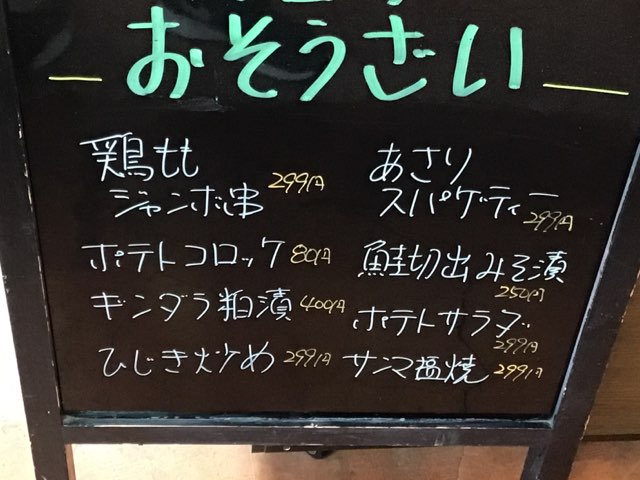 おそうざい
鶏もも
ジャンボ串 299円
ポテトコロッケ 80円
ギンダラ粕漬 400円
ひじき炒め 299円
あさり
スパゲティー
299円
鮭切出みそ漬
250円
ポテトサラダ
299円
サンマ塩焼 299円